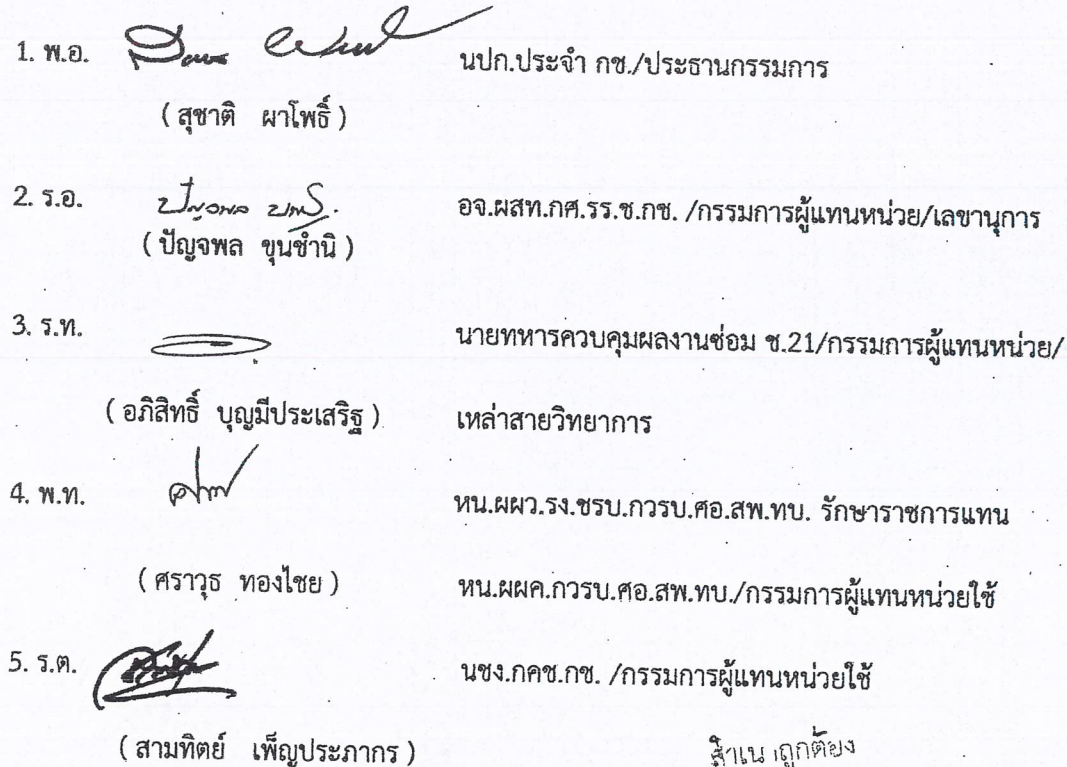 1. พ.อ. นปก.ประจำ กช./ประธานกรรมการ
( สุชาติ ผาโพธิ์ )
2. ร.อ. อจ.ผสท.กศ.รร.ช.กช. /กรรมการผู้แทนหน่วย/เลขานุการ
( ปัญจพล ขุนชำนิ )
3. ร.ท. นายทหารควบคุมผลงานซ่อม ช.21/กรรมการผู้แทนหน่วย/
( อภิสิทธิ์ บุญมีประเสริฐ ) เหล่าสายวิทยาการ
4. พ.ท. หน.ผผว.รง.ซรบ.กวรบ.ศอ.สพ.ทบ. รักษาราชการแทน
( ศราวุธ ทองไชย ) หน.ผผค.กวรบ.ศอ.สพ.ทบ./กรรมการผู้แทนหน่วยใช้
5. ร.ต. นชง.กคช.กช. /กรรมการผู้แทนหน่วยใช้
( สามทิตย์ เพ็ญประภากร ) สำเนาถูกต้อง